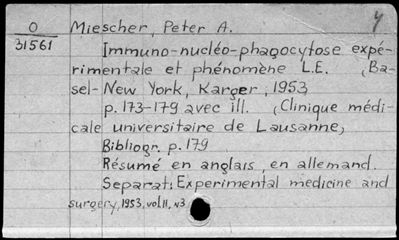 O
31561
Miescher, Peter A.
Immuno-nucléo-phagocytose expé-
rimentale et phénomène L.E. (Ba-
sel-New York, Karger, 1953
p. 173-179 avec ill. (Clinique médi-
cale universitaire de Lausanne)
Bibliogr. p. 179
Résumé en anglais, en allemand.
Separat: Experimental medicine and
surgery, 1953, vol 11, n3